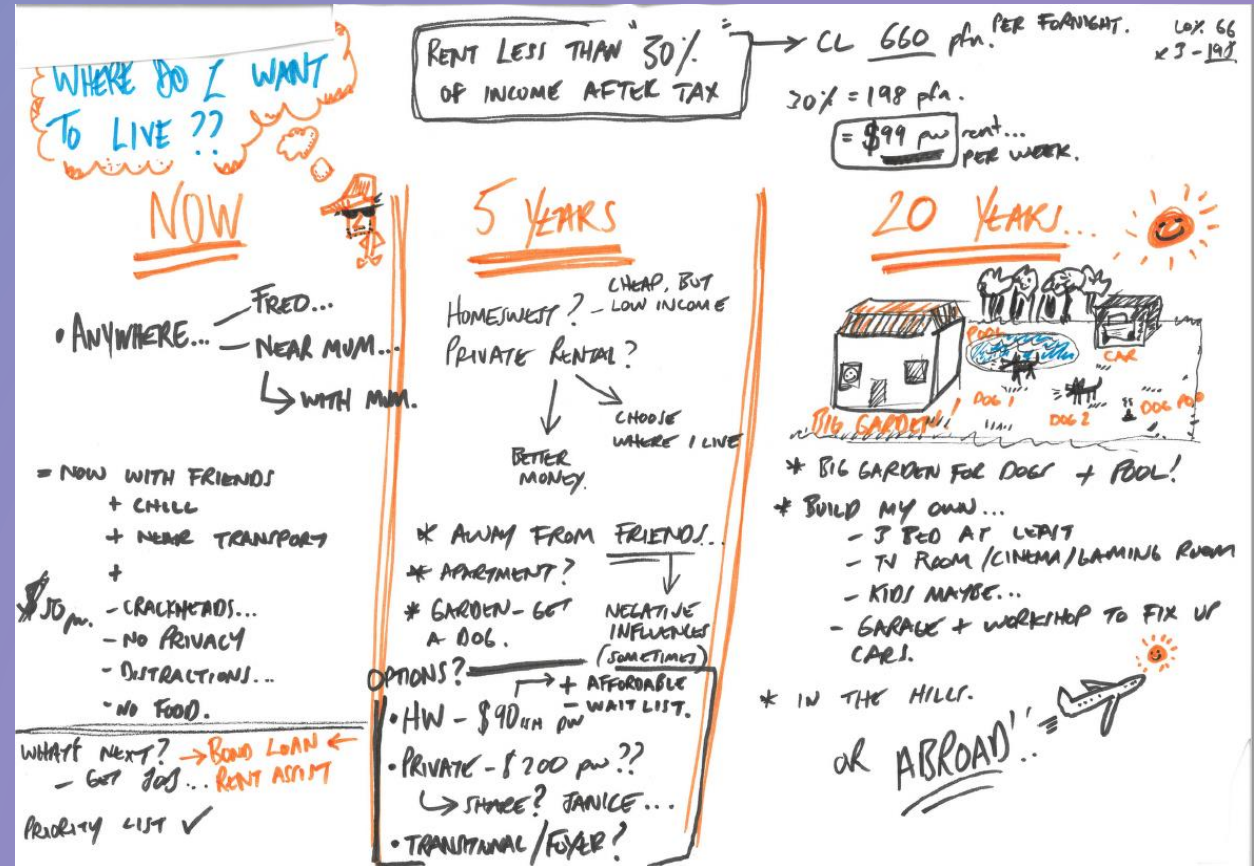 WHERE DO I WANT
TO LIVE ??
RENT LESS THAN "30%"
OF INCOME AFTER TAX
CL 660 pfn. PER FORNIGHT.
10% 66
x 3 - 198
30% = 198 pfn.
= $99 pw rent...
PER WEEK.
NOW
• ANYWHERE...
FRED...
NEAR MUM...
WITH MUM.
= NOW WITH FRIENDS
+ CHILL
+ NEAR TRANSPORT
+
$50 pw.
- CRACKHEADS...
- NO PRIVACY
- DISTRACTIONS...
- NO FOOD.
WHAT'S NEXT? → BOND LOAN ←
- GET JOB... RENT ASSIST
PRIORITY LIST ✓
5 YEARS
HOMESWEST? - CHEAP, BUT
LOW INCOME
PRIVATE RENTAL?
CHOOSE
WHERE I LIVE
BETTER
MONEY.
* AWAY FROM FRIENDS...
* APARTMENT?
* GARDEN - GET
A DOG.
NEGATIVE
INFLUENCES
(SOMETIMES)
OPTIONS?
• HW - $90 pw
+ AFFORDABLE
- WAIT LIST.
• PRIVATE - $200 pw ??
SHARE? JANICE...
• TRANSITIONAL / FOYER?
20 YEARS...
POOL
CAR
DOG 1
DOG 2
DOG POO
BIG GARDEN!
* BIG GARDEN FOR DOGS + POOL!
* BUILD MY OWN...
- 3 BED AT LEAST
- TV ROOM / CINEMA / GAMING ROOM
- KIDS MAYBE...
- GARAGE + WORKSHOP TO FIX UP
CARS.
* IN THE HILLS.
OR ABROAD!!